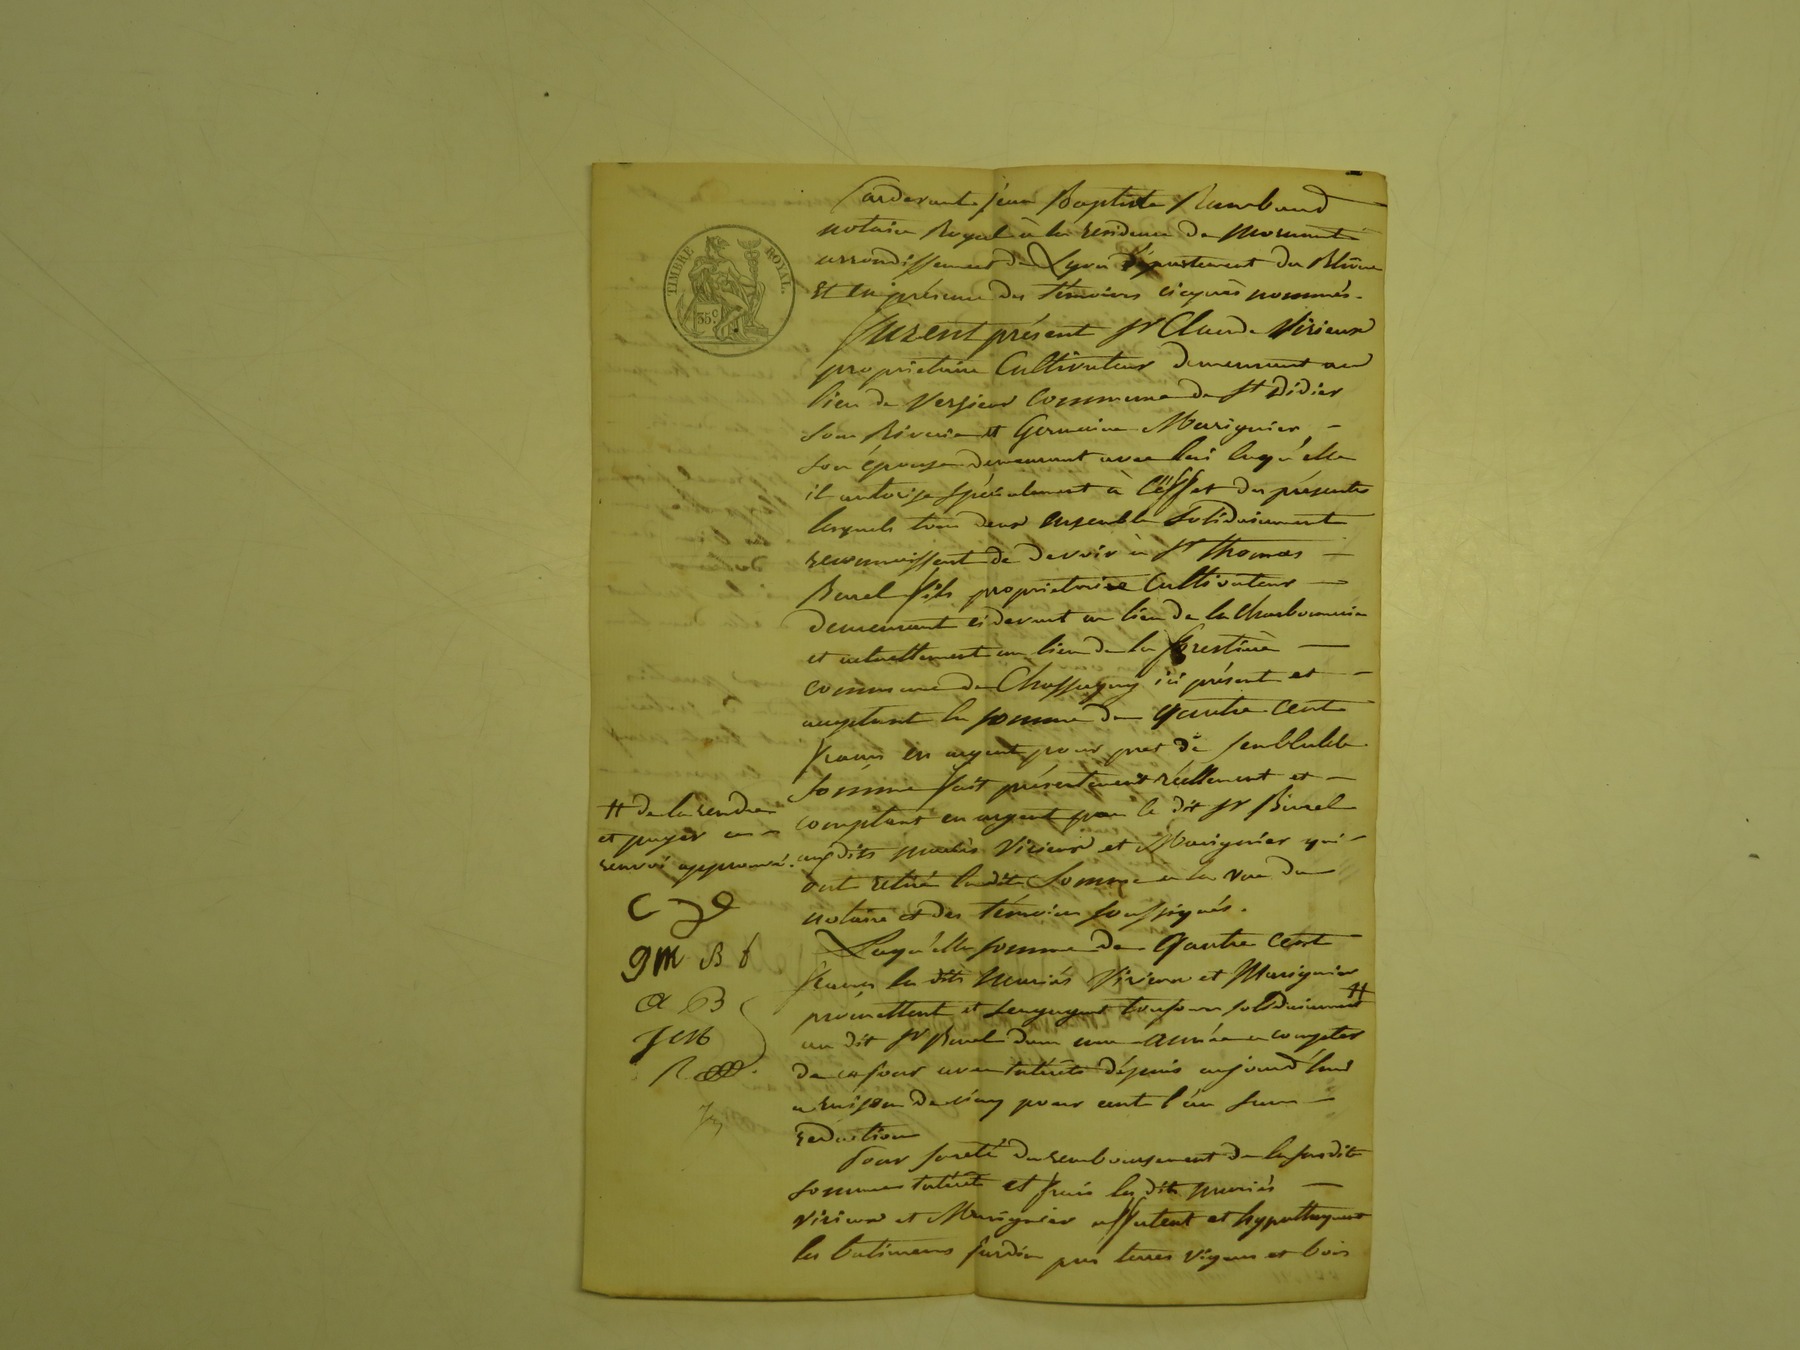 TIMBRE ROYAL.
35c
Pardevant Jean Baptiste Rambaud
notaire Royal à la residence de Mornant
arrondissement de Lyon département du Rhône
Et en présence des témoins ciaprès nommés.
Furent présent Sr Claude Virieux
propriétaire Cultivateur demeurant au
lieu de Verzieux Commune de St Didier
sous Riverie et Germaine Marignier
son épouse demeurant avec lui laqu'elle
il autorise spécialement à l'éffet des présentes
lesquels tous deux ensemble solidairement
reconnoissent de devoir à Sr Thomas
Burel fils propriétaire Cultivateur
demeurant ci devant au lieu de la Charbonnerie
et actuellement au lieu de la
commune de Chassagny ici présent et
acceptant la somme de quatre cent
francs en argent pour pret de semblable
somme fait présentement réellement et
comptant en argent par le dit Sr Burel
aux dits mariés Virieux et Marignier qui
ont retiré ladite Somme à la vue du
notaire et des témoins soussignés.
Laqu'elle somme de quatre cent
francs les dits mariés Virieux et Marignier
promettent et sengagent toujours solidairement #
au dit Sr Burel dans une année a compter
de ce jour avec intérêts dépuis aujourd'hui
a raison de cinq pour cent l'an sans
réduction
Pour sureté du remboursement de la susdite
somme intérêts et frais les dits mariés
Virieux et Marignier affectent et hypothequent
les batimens jardin prés terres vignes et bois
# de la rendre
et payer en
renvoi approuvé.
gm B f
B